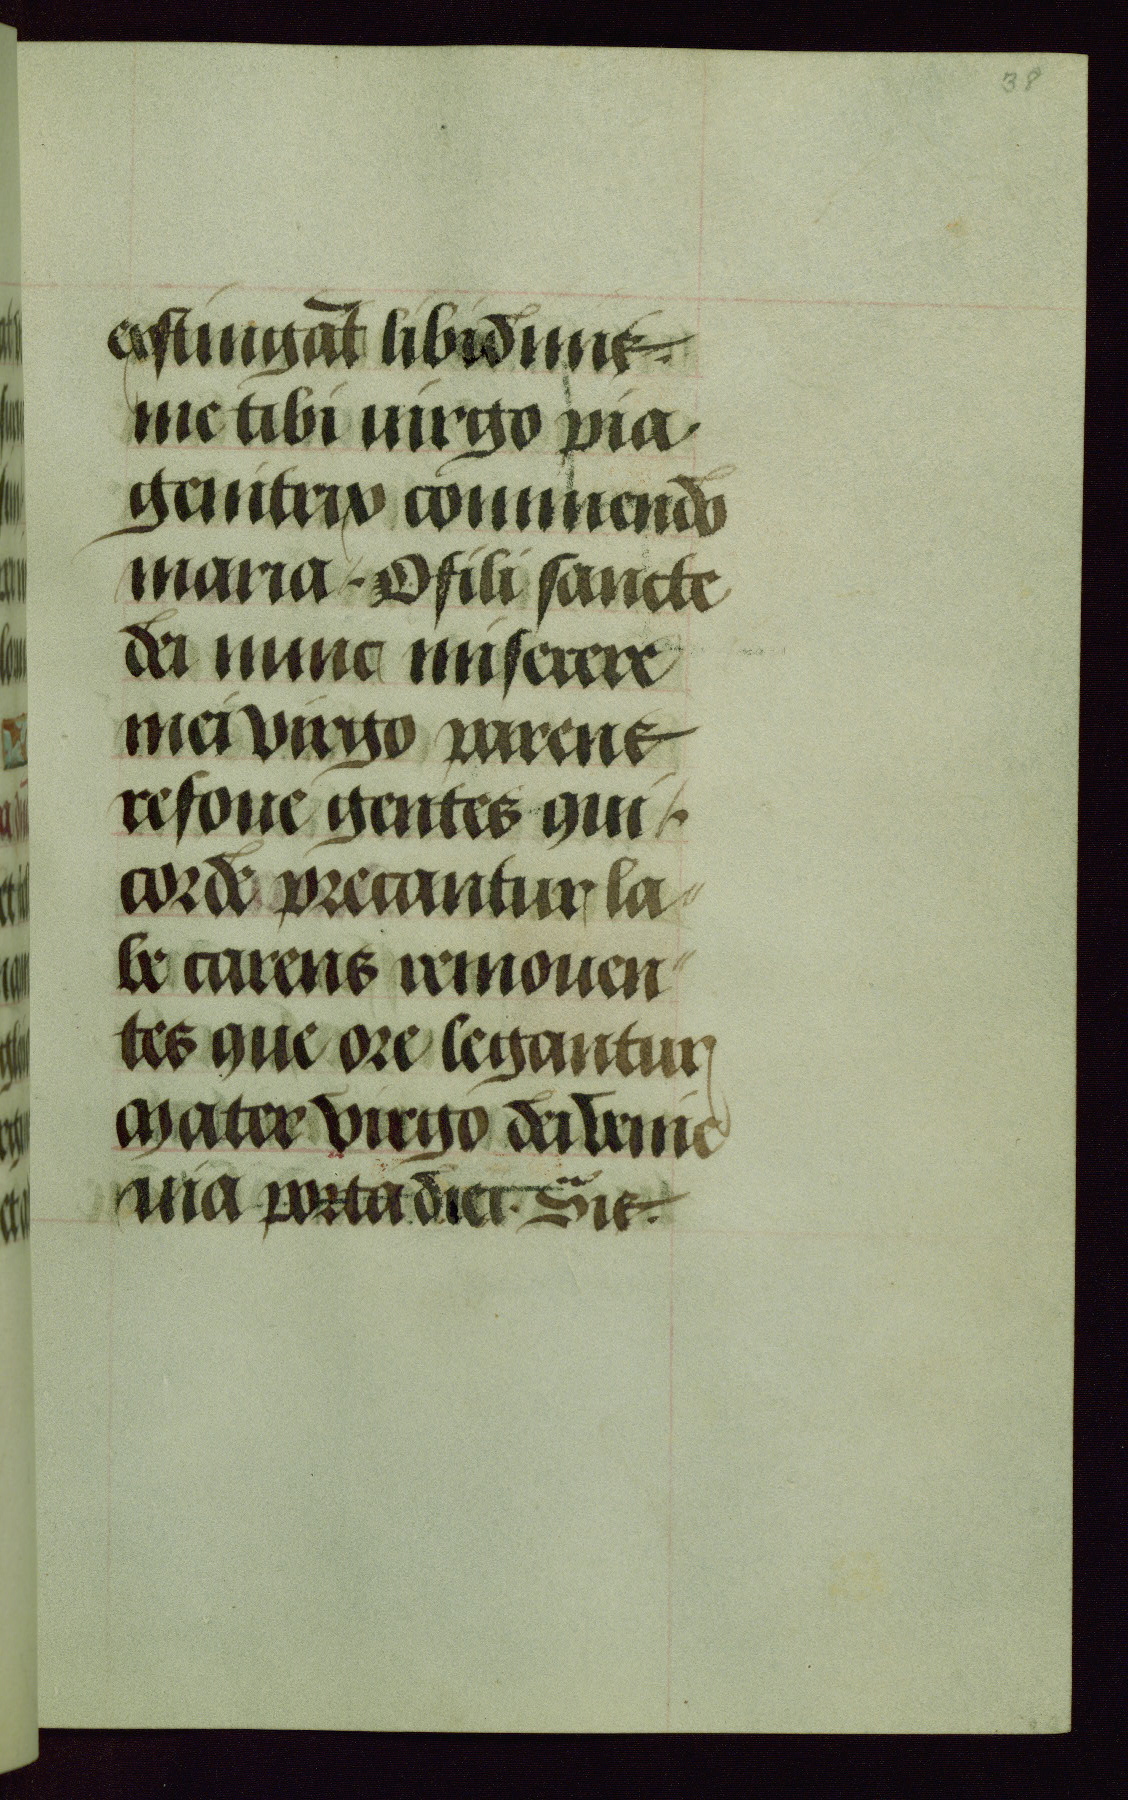 38
exstingat̄ libidinis
me tibi uirgo pia
genitrix commendo
maria. O fili sancte
dei nunc miserere
mei virgo parens
resoue gentes qui
corde precantur la
be carens remouen
tes que ore legantur
Mater virgo dei
uia porta diei. Sit.